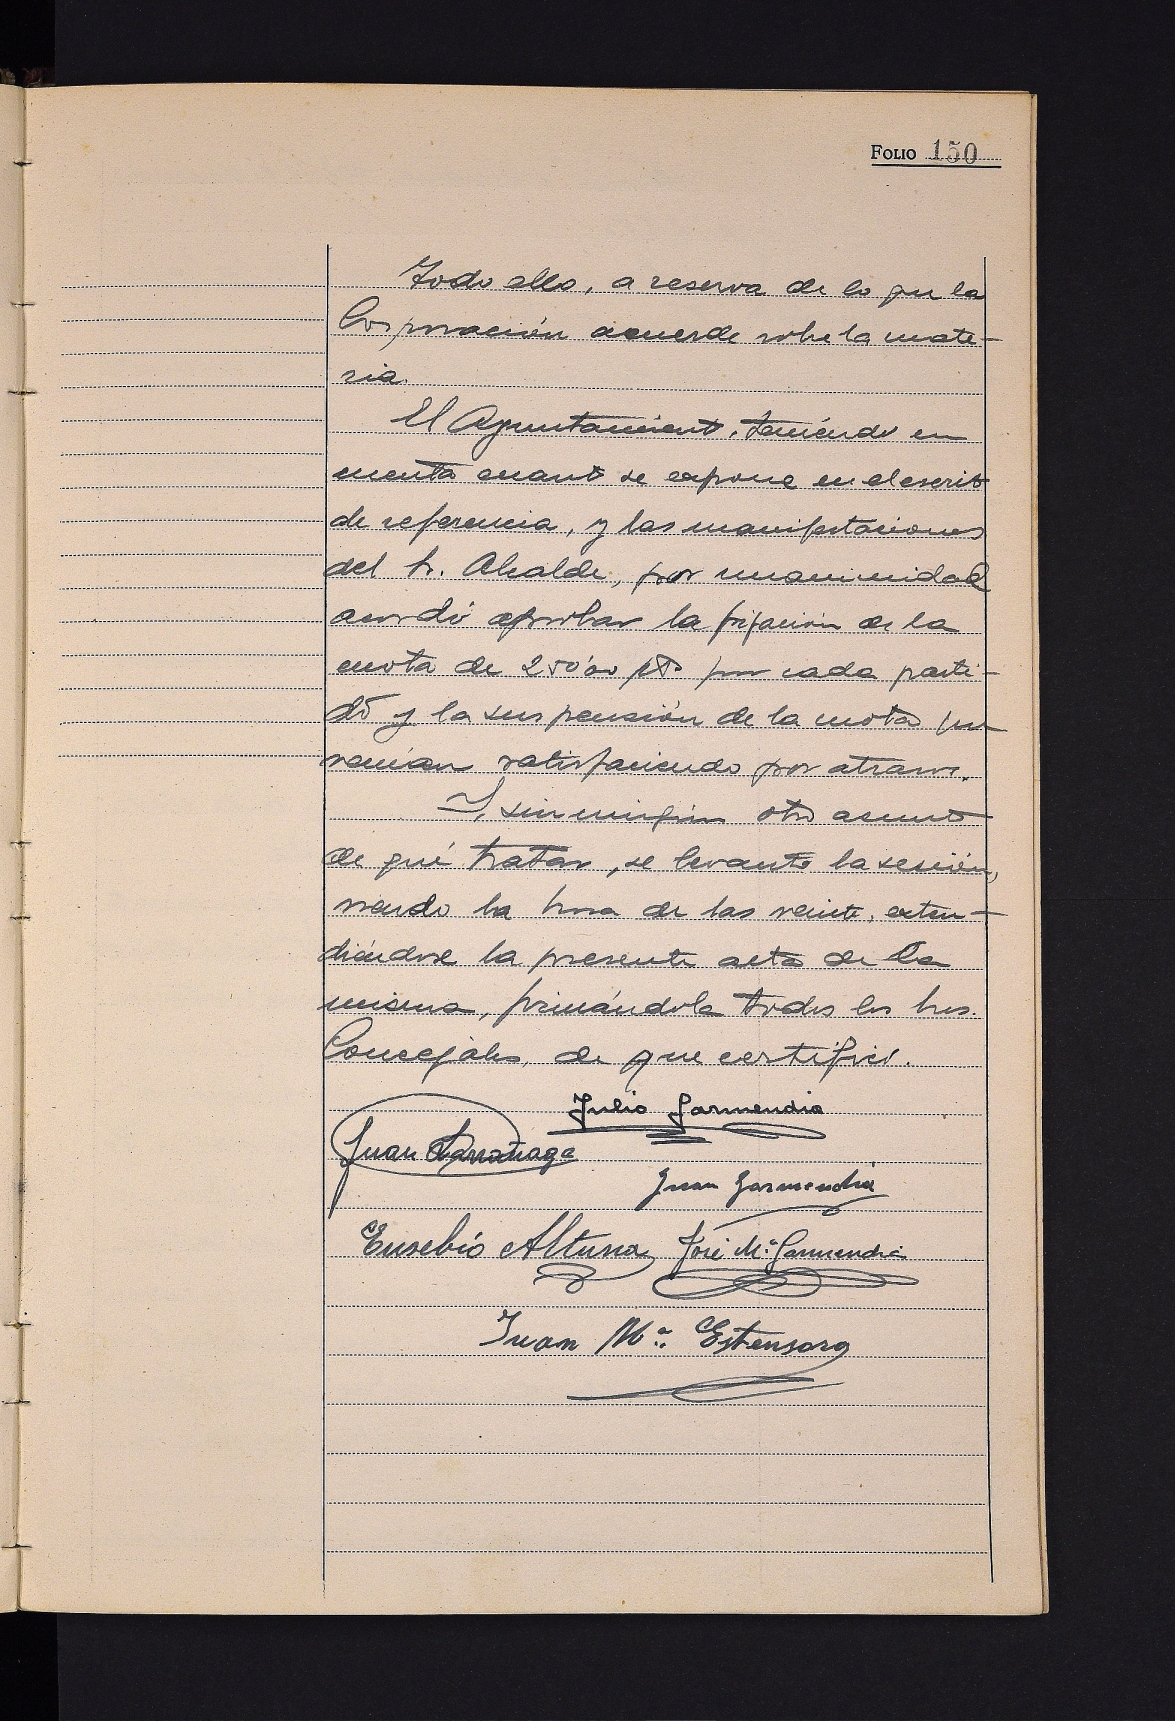 FOLIO 150
Todo ello, a reserva de lo que la
Corporación acuerde sobre la mate-
ria.
El Ayuntamiento, teniendo en
cuenta cuanto se expone en el escrito
de referencia, y las manifestaciones
del Sr. Alcalde, por unanimidad
acordó aprobar la fijación de la
cuota de 250'00 pts por cada parti-
do y la suspensión de la cuota que
venían satisfaciendo por atrasos.
Y, sin ningún otro asunto
de qué tratar, se levantó la sesión,
siendo la hora de las veinte, exten-
diéndose la presente acta de la
misma, firmándola todos los Sres.
Concejales, de que certifico.
Julio Garmendia
Juan Larrañaga
Juan Garmendia
Eusebio Altuna José Mª Garmendia
Juan Mª Estensoro